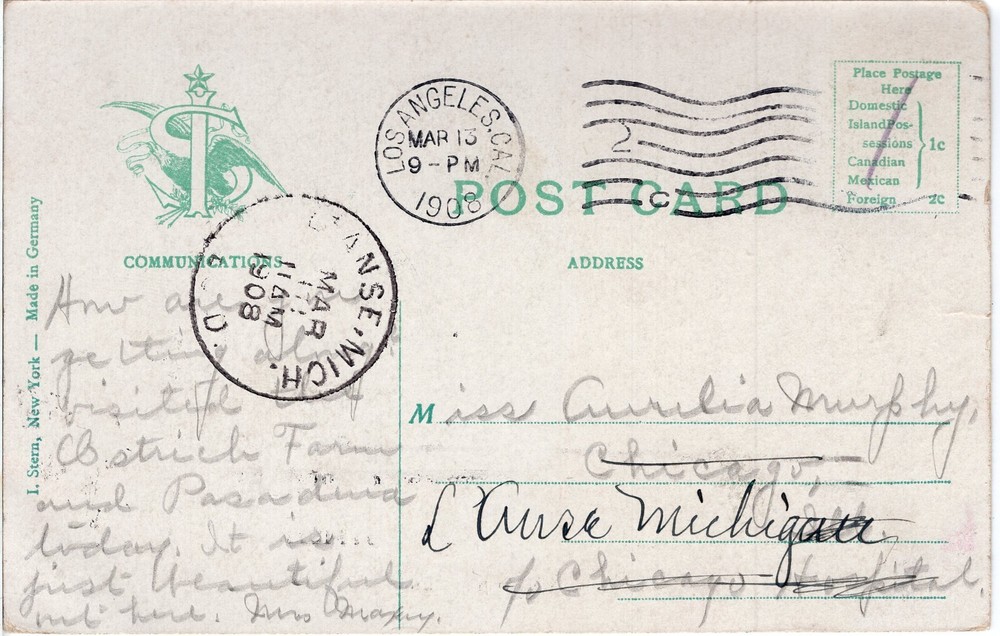 I. Stern, New York — Made in Germany
LOS ANGELES, CAL
MAR 13
9 - PM
1908
2
C
POST CARD
Place Postage
Here
Domestic
Island Pos-
sessions
Canadian
Mexican
1c
Foreign 2c
L'ANSE, MICH.
MAR
11AM
1908
COMMUNICATIONS
ADDRESS
How are
getting along
visited the
Ostrich Farm
and Pasadena
today. It is
just beautiful
out here. Mrs
Miss Aurelia Murphy,
Chicago,
L'Anse Michigan
c/o Chicago Hospital.